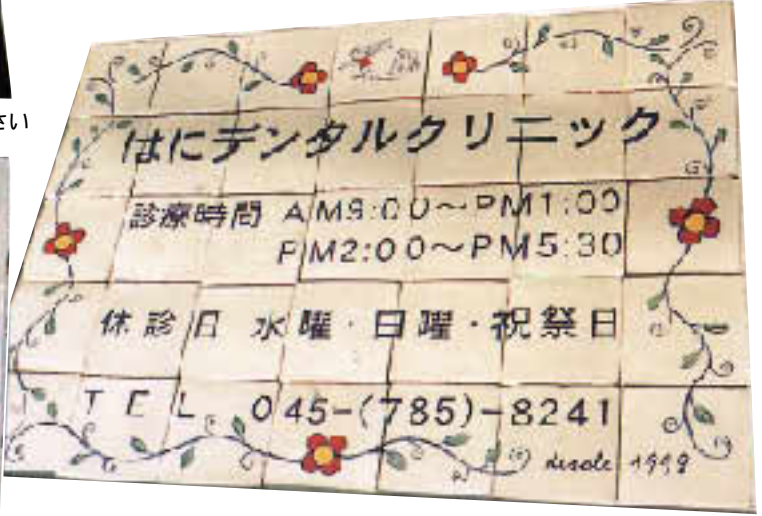 さい
はにデンタルクリニック
診療時間 AM9:00～PM1:00
PM2:00～PM5:30
休診日 水曜・日曜・祝祭日
TEL 045-(785)-8241
1999